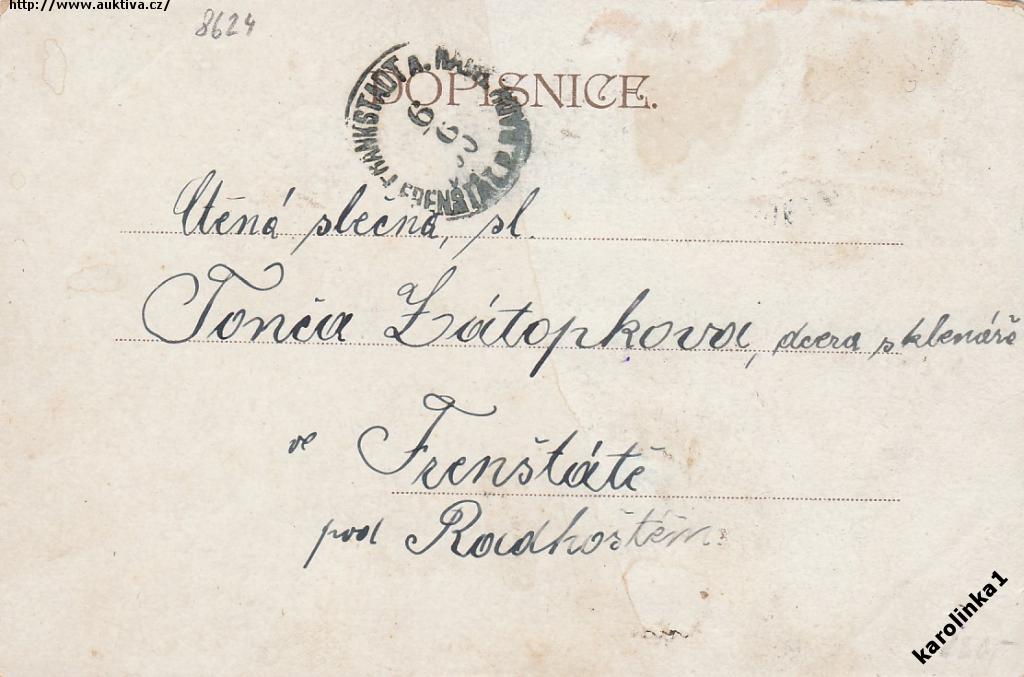 http://www.auktiva.cz/
8624
DOPISNICE.
FRANKSTADT A.
FRENŠTÁT P.
Ctěná slečna, sl.
Tonča Zátopkova, dcera sklenáře
ve Frenštátě
pod Radhoštěm.
karolinka1